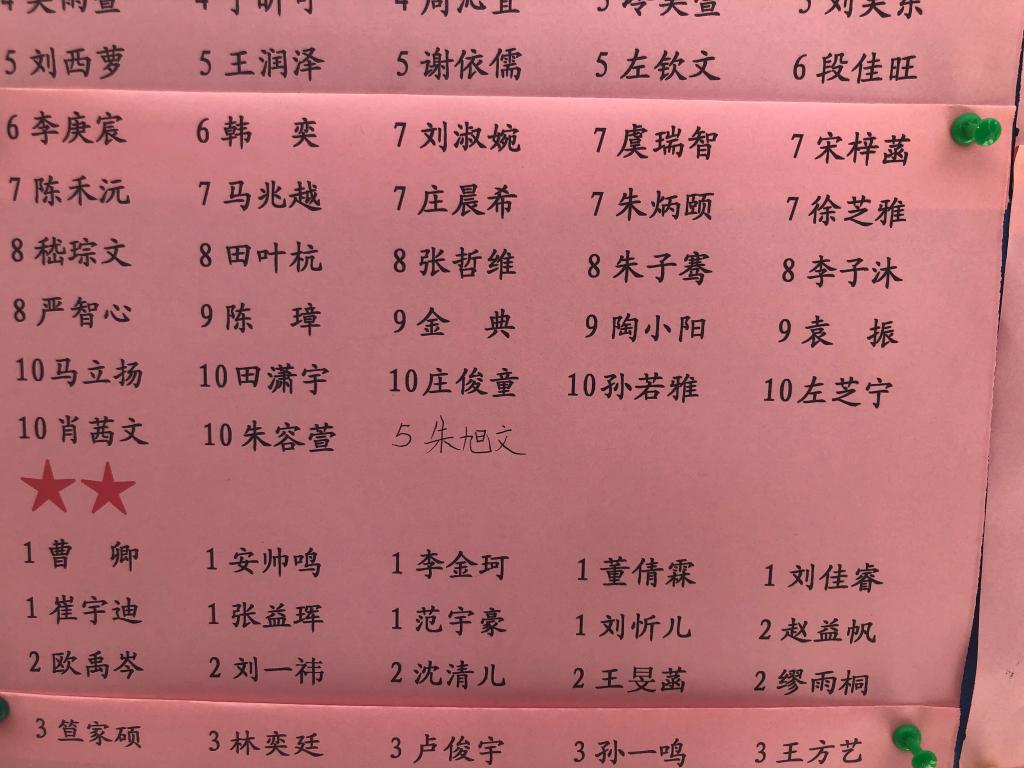 5 刘西萝 5 王润泽 5 谢依儒 5 左钦文 6 段佳旺
6 李庚宸 6 韩 奕 7 刘淑婉 7 虞瑞智 7 宋梓菡
7 陈禾沅 7 马兆越 7 庄晨希 7 朱炳颐 7 徐芝雅
8 嵇琮文 8 田叶杭 8 张哲维 8 朱子骞 8 李子沐
8 严智心 9 陈 璋 9 金 典 9 陶小阳 9 袁 振
10 马立扬 10 田潇宇 10 庄俊童 10 孙若雅 10 左芝宁
10 肖茜文 10 朱容萱 5 朱旭文
1 曹 卿 1 安帅鸣 1 李金珂 1 董倩霖 1 刘佳睿
1 崔宇迪 1 张益珲 1 范宇豪 1 刘忻儿 2 赵益帆
2 欧禹岑 2 刘一祎 2 沈清儿 2 王旻菡 2 缪雨桐
3 笪家硕 3 林奕廷 3 卢俊宇 3 孙一鸣 3 王方艺